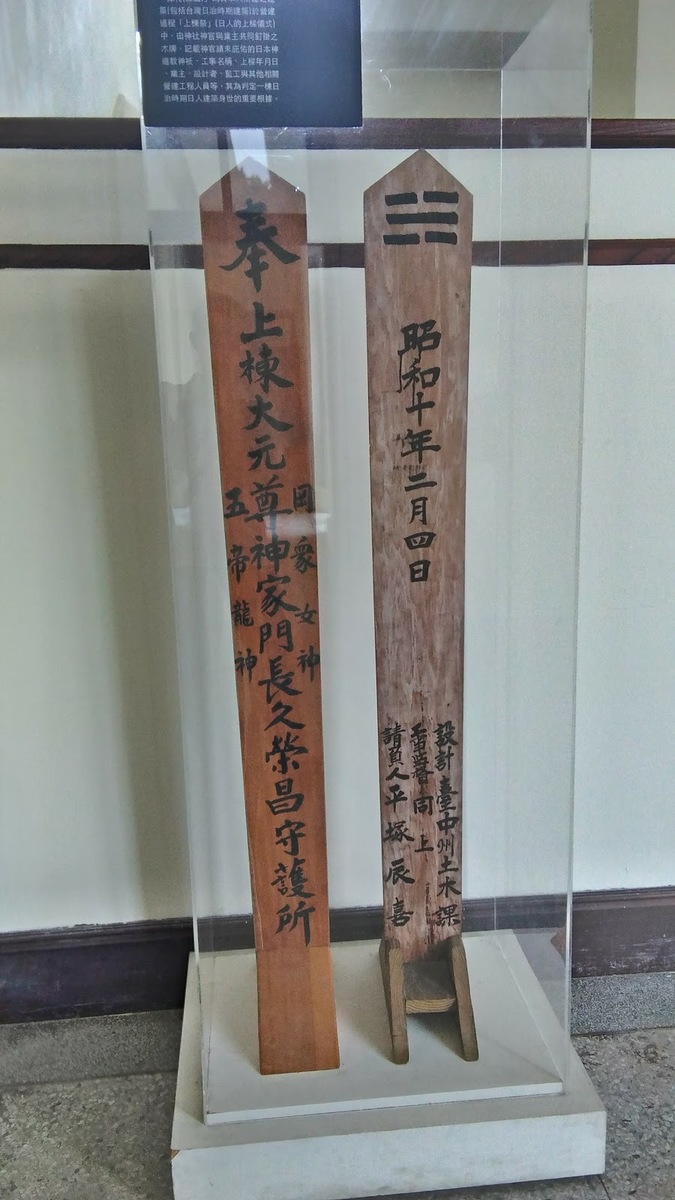 築(包括台灣日治時期建築)於營建
過程「上棟祭」(日人的上樑儀式)
中，由神社神官與業主共同釘掛之
木牌，記載神官請來庇佑的日本神
道教神祇、工事名稱、上樑年月日
、業主、設計者、監工與其他相關
營建工程人員等，其為判定一棟日
治時期日人建築身世的重要根據。
奉上棟大元尊神家門長久榮昌守護所
罔衆女神
五帝龍神
昭和十年二月四日
設計臺中州土木課
監督同上
請負人平塚辰喜